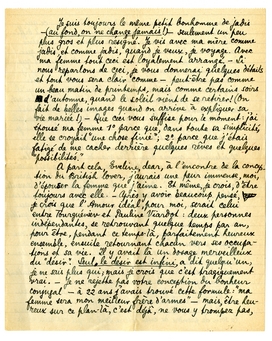 Je suis toujours le même petit bonhomme de jadis
(au fond, on ne change jamais!) — seulement un peu
plus gros et plus résigné. Je vis avec ma mère comme
jadis et comme jadis, quand je veux, je voyage. Avec
ma femme tout ceci est loyalement arrangé. — Si
nous reparlons de ceci, je vous donnerai quelques détails
et tout vous sera clair — comme — peut-être pas comme
un beau matin de printemps, mais comme certains soirs
d'automne, quand le soleil vient de se retirer! (On
fait de belles images quand on arrive à expliquer sa
vie maritale!) — Que ceci vous suffise pour le moment: j'ai
épousé ma femme 1° parce que, dans toute sa simplicité,
elle se croyait "une chose finie", 2° parce que j'étais
fatigué de me cacher derrière quelques rêves et quelques
possibilités.
À part cela, Eveline, dear, à l'encontre de la concep-
tion du British lover, j'aurais une peur immense, moi,
d'épouser la femme que j'aime. Et même, je crois, d'être
toujours avec elle. — Après y avoir beaucoup pensé,
je crois que l'Amour idéal pour moi, serait celui
entre Tourgueniev et Pauline Viardot: deux personnes
indépendantes, se retrouvant quelque temps par an,
pour être, pendant ce temps-là, parfaitement heureux
ensemble, ensuite retournant chacun vers ses occupa-
tions et sa vie. Il y avait là un dosage merveilleux
du désir. Seul le désir est infini, a dit quelqu'un,
je ne sais plus qui, mais je crois que c'est tragiquement
vrai. — Je ne rejette pas votre conception du bonheur
conjugal — à 22 ans j'avais trouvé cette formule: "ma
femme sera mon meilleur frère d'armes" — mais, être heu-
reux sur ce plan-là, c'est déjà, ne vous y trompez pas,